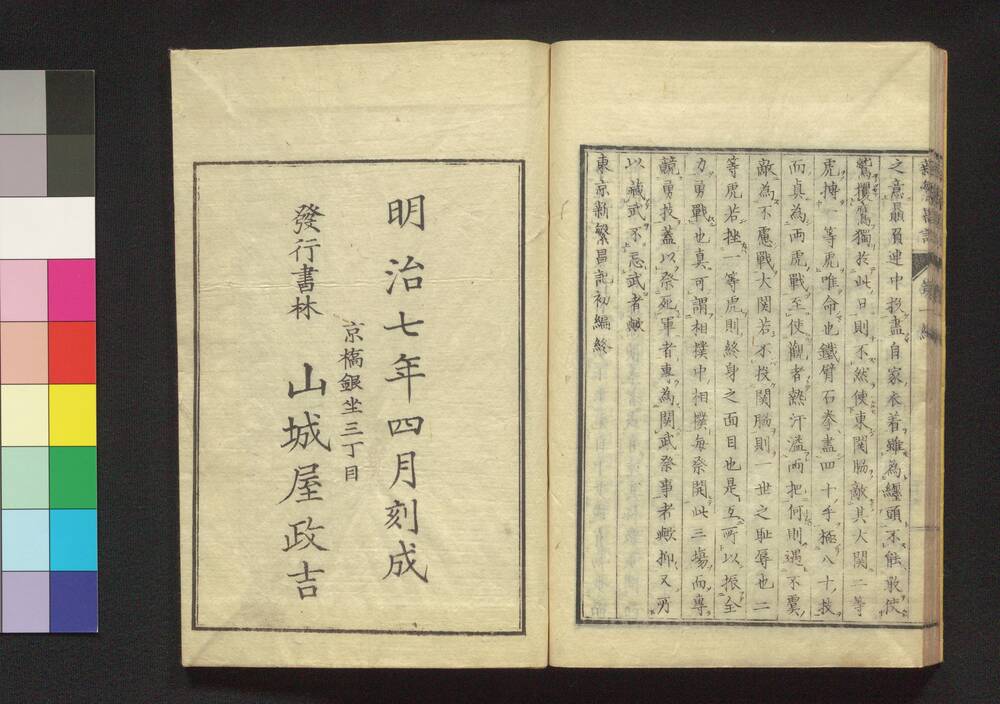 之意贔屓連中投盡自家衣着雖為纏頭不能敢使
鷲攫鷹獨於此日則不然使東関脇敵其大関二等
虎搏一等虎唯命也鐵臂石拳盡四十手極八十技
而真為両虎戰至使觀者熱汗溢両把何則遇不虞
敵為不慮戰大関若不投関脇則一世之耻辱也二
等虎若挫一等虎則終身之面目也是互所以振全
力勇戰也真可謂相撲中相撲毎祭開此三場而專
競勇技蓋以祭死軍者專為関武祭事者歟抑又所
以藏武不忘武者歟
東京新繁昌記初編終
明治七年四月刻成
京橋銀坐三丁目
發行書林 山城屋政吉